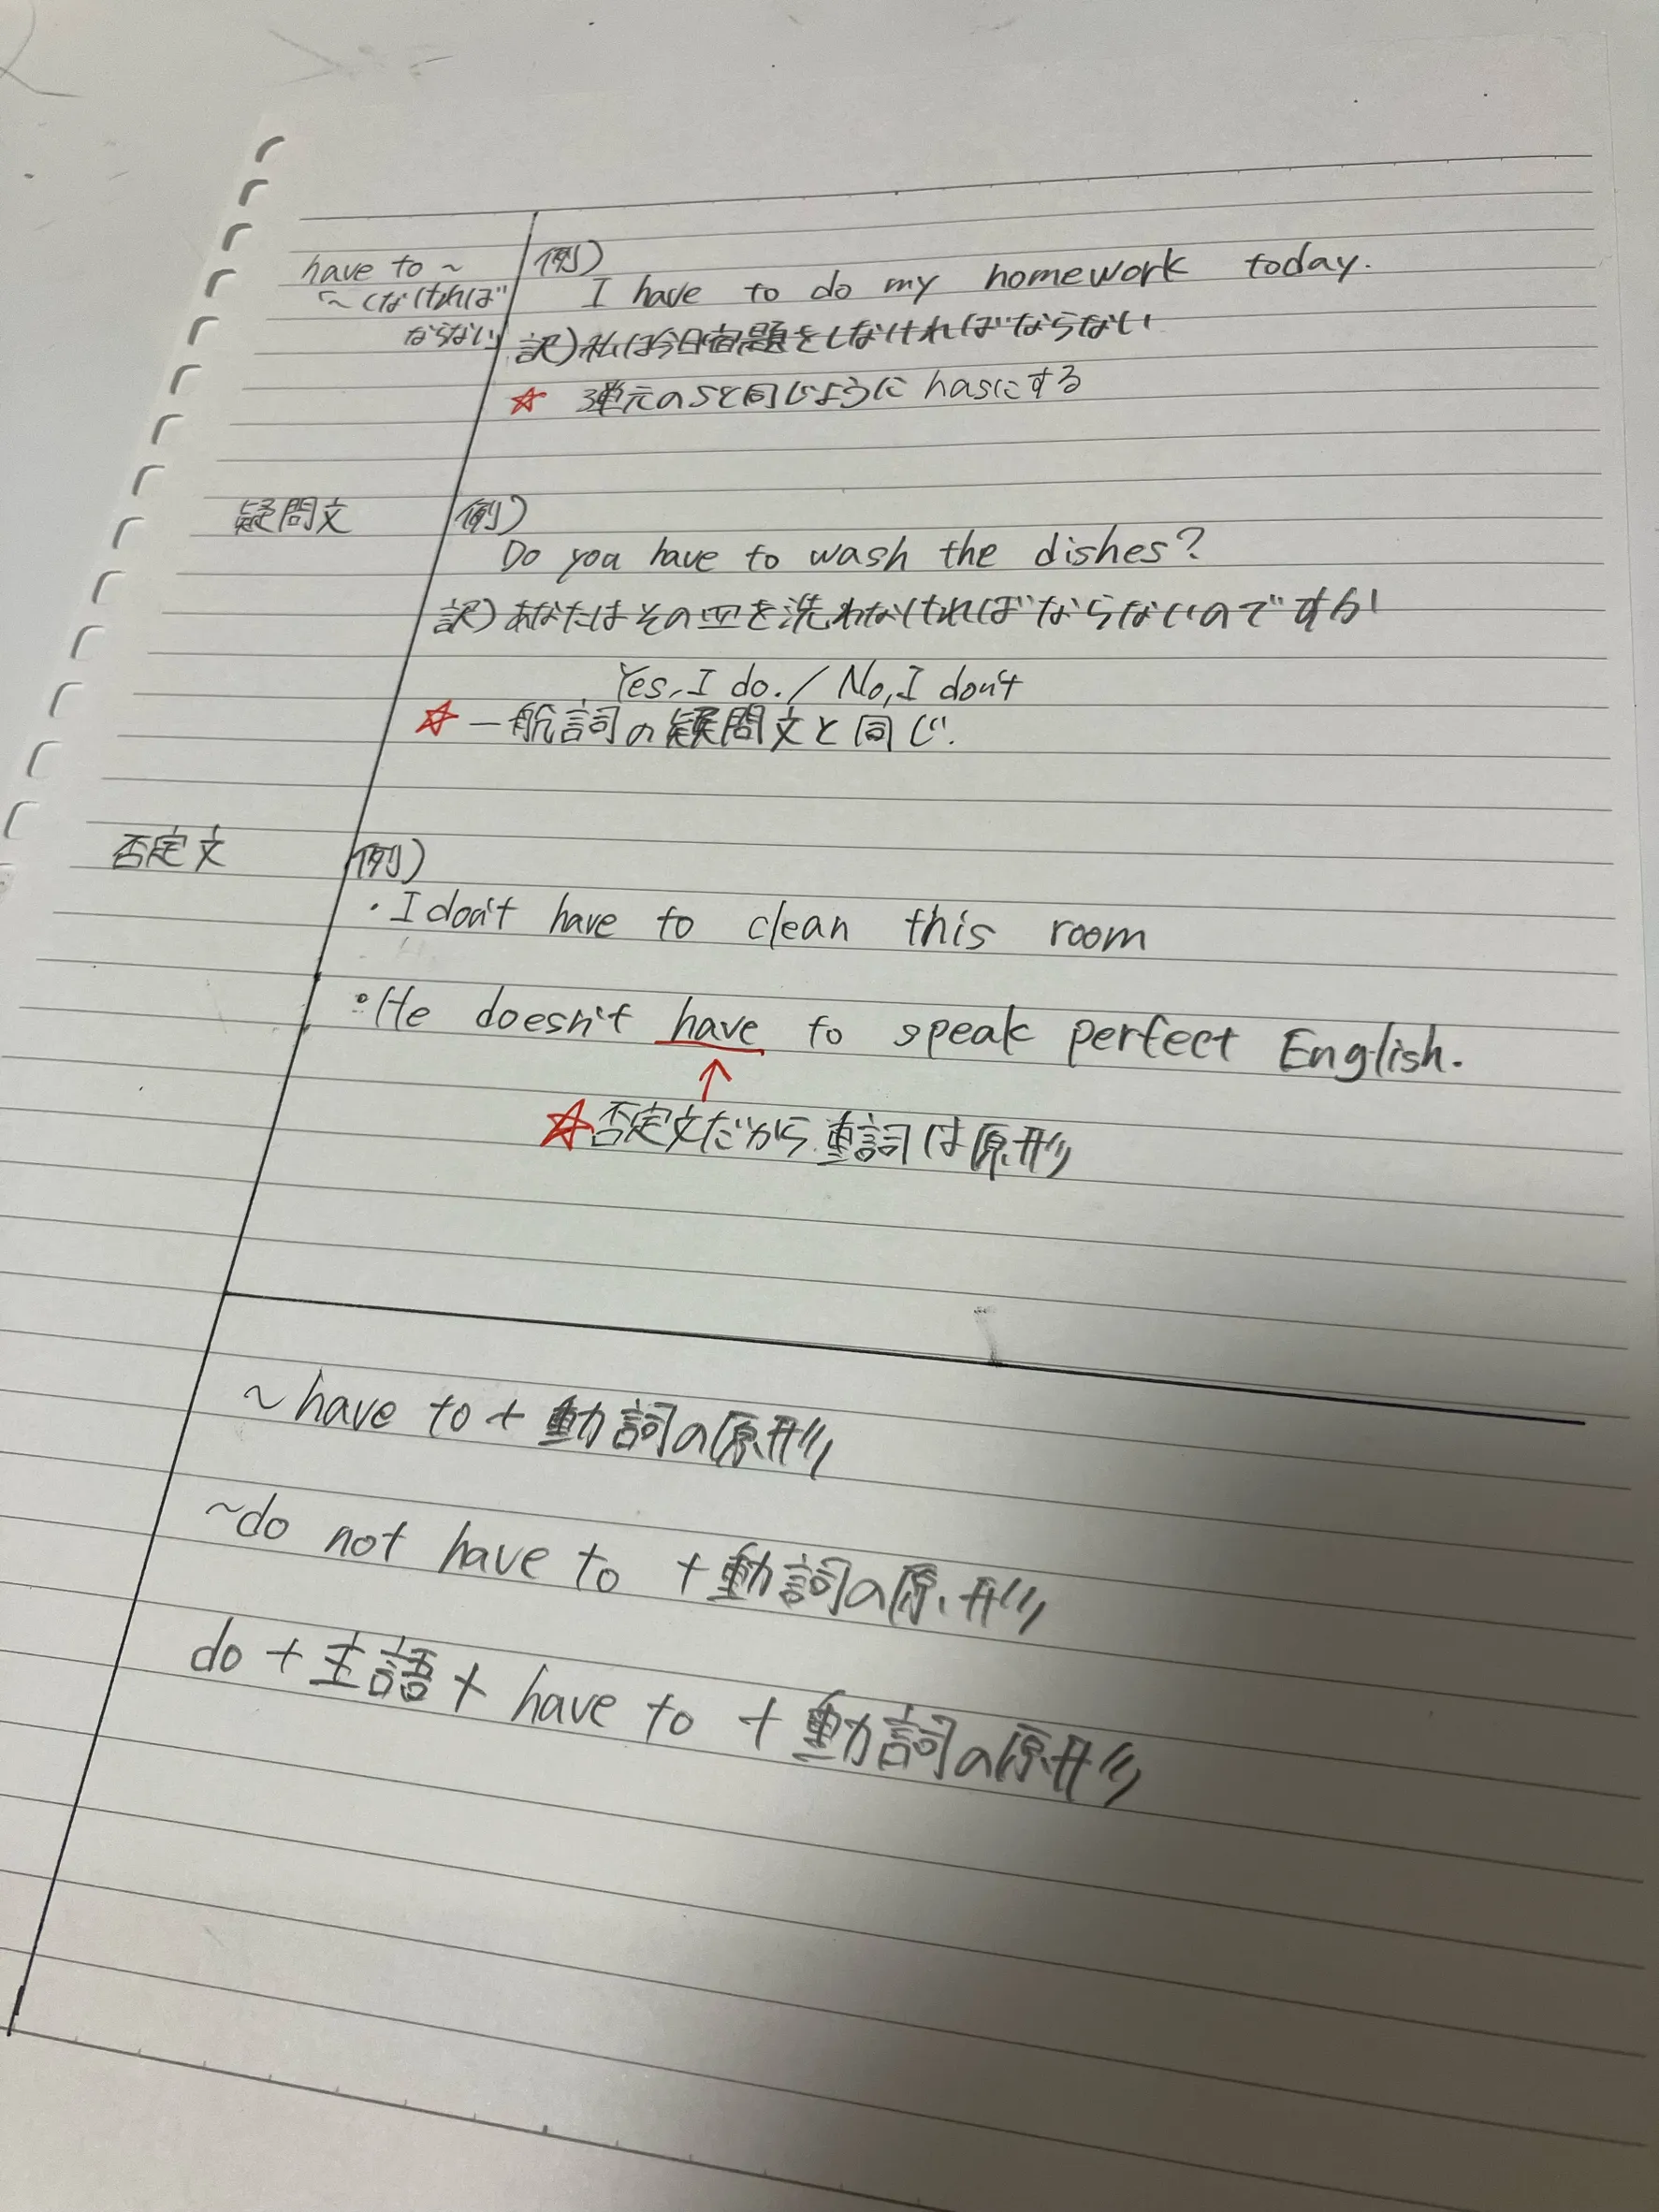 have to ~
「~しなければ
ならない」
例)
I have to do my homework today.
訳)私は今日宿題をしなければならない
☆ 3単元のSと同じように hasにする
疑問文
例)
Do you have to wash the dishes?
訳)あなたはその皿を洗わなければならないのですか
Yes, I do. / No, I don't
☆ 一般詞の疑問文と同じ.
否定文
例)
・I don't have to clean this room
・He doesn't have to speak perfect English.
↑
☆否定文だから動詞は原形
~have to + 動詞の原形
~do not have to + 動詞の原形
do + 主語 + have to + 動詞の原形